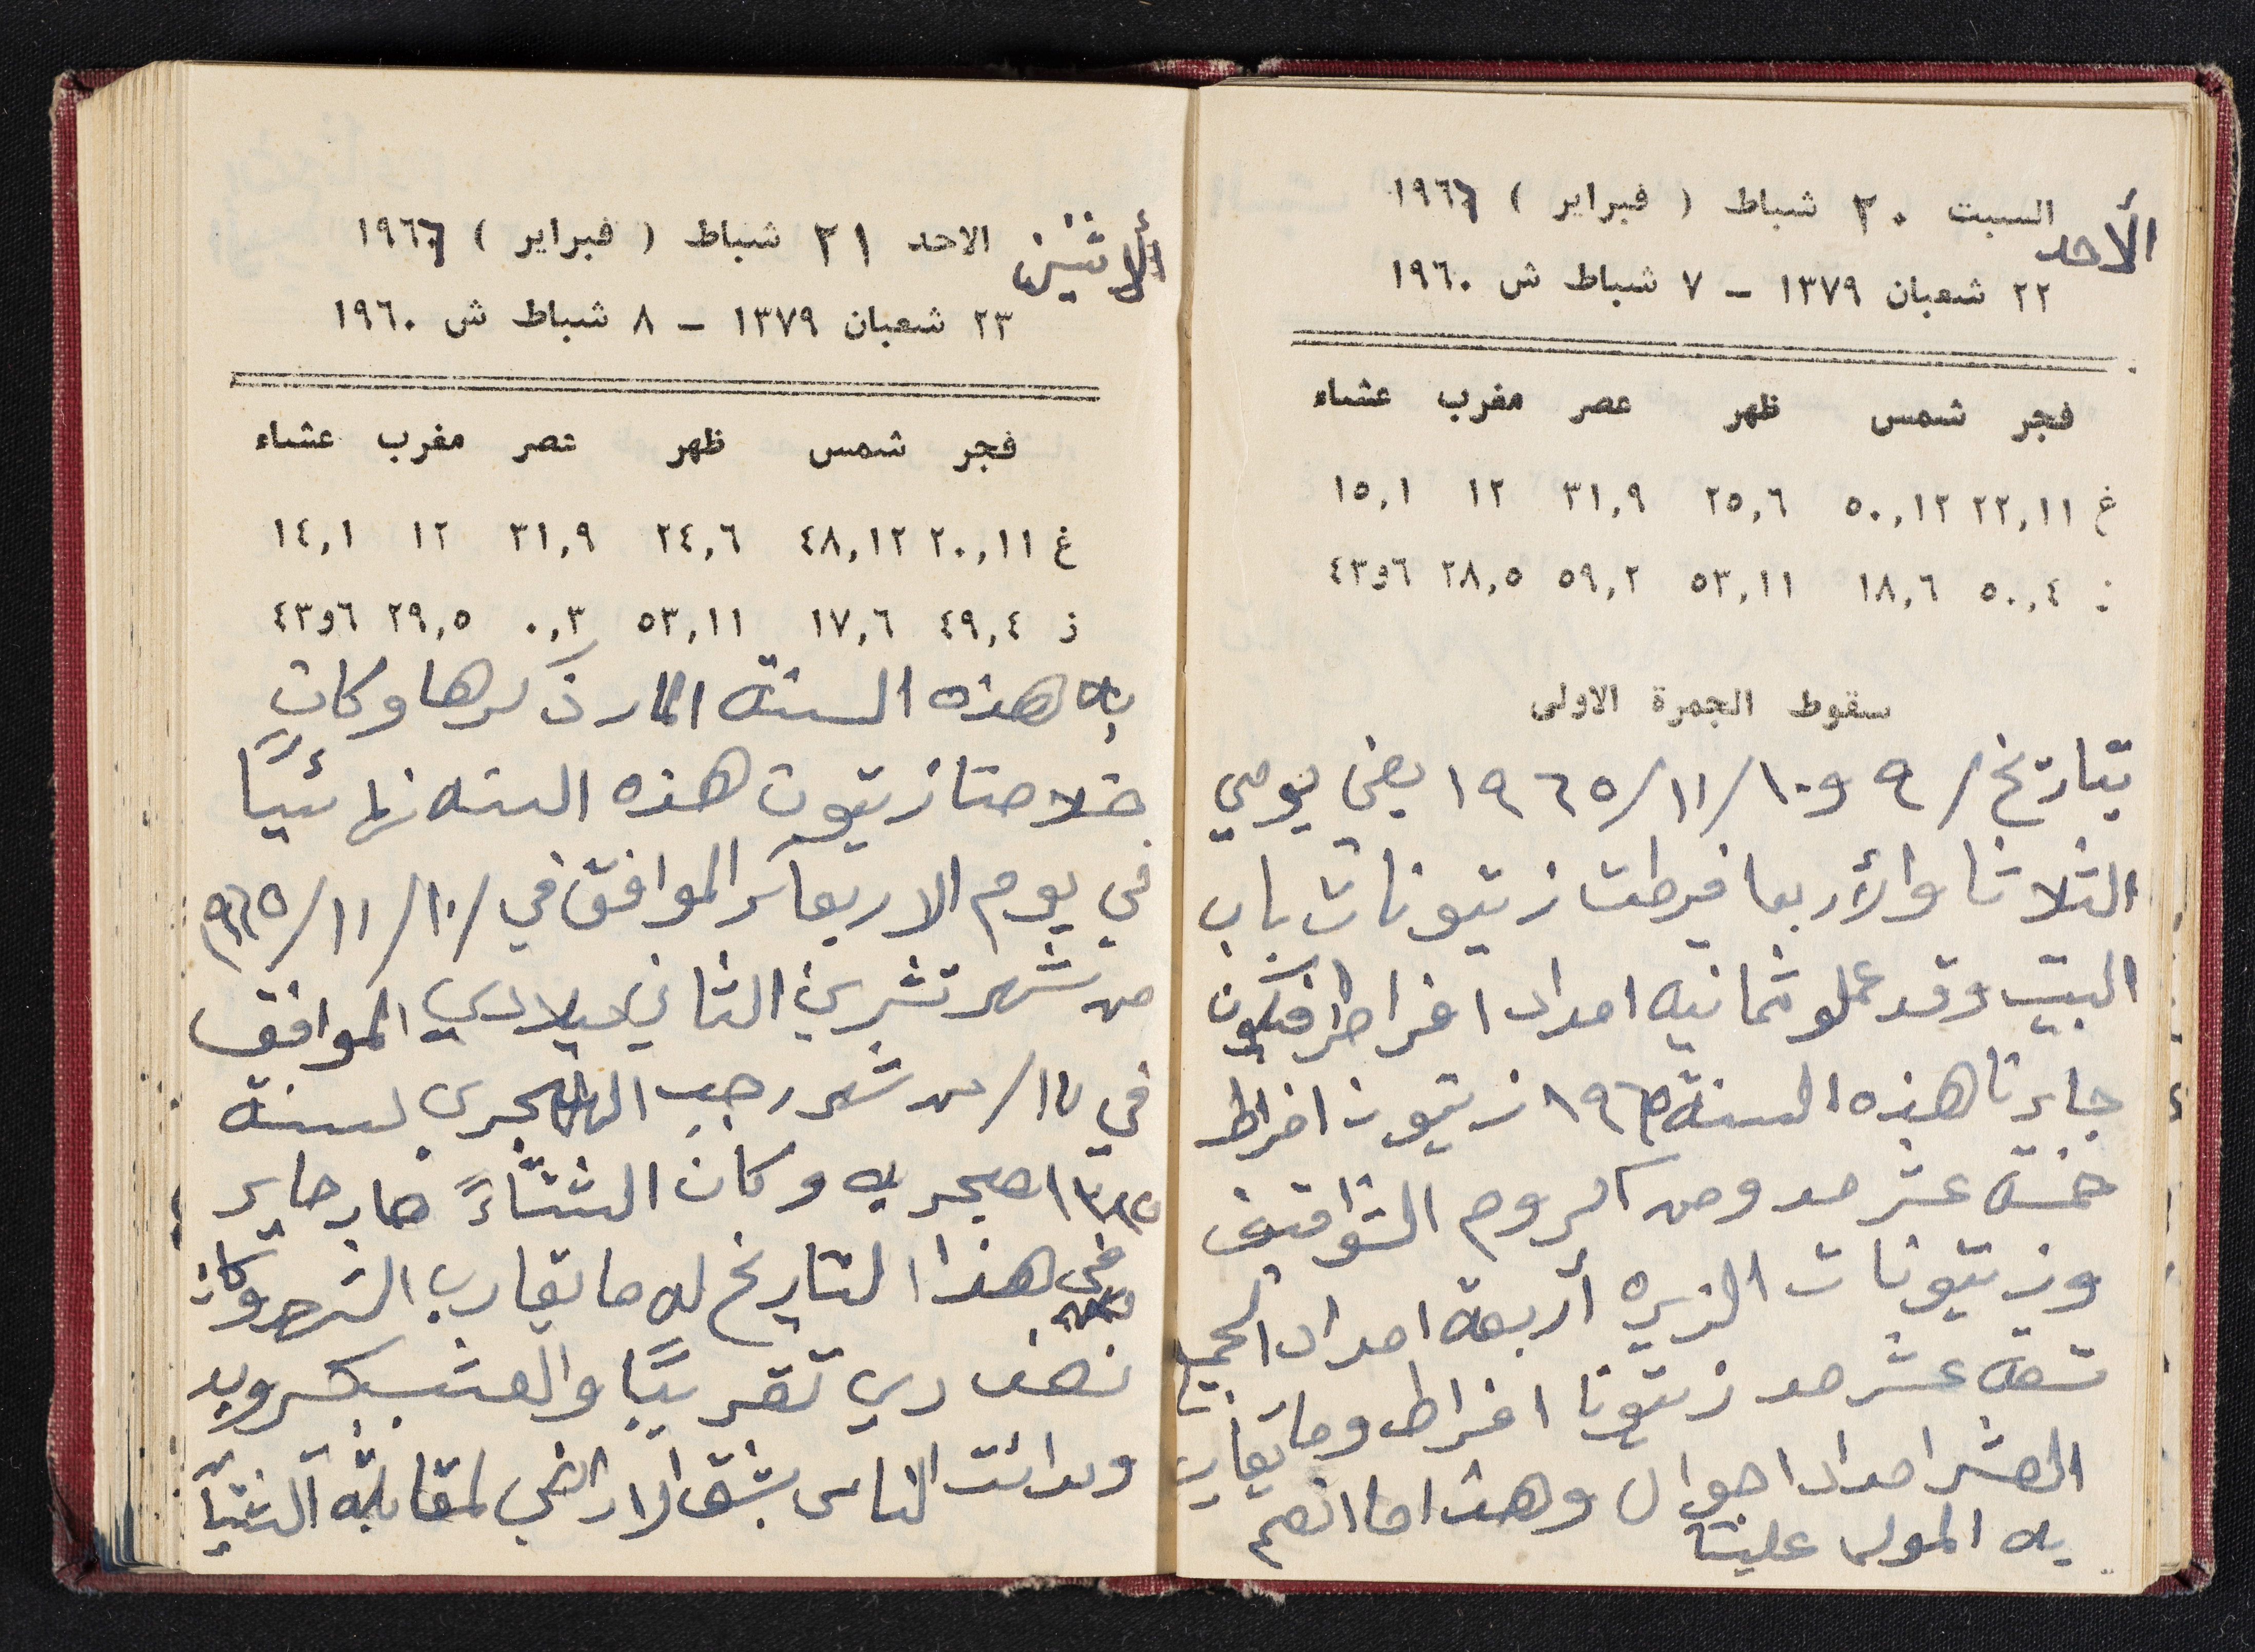 الأحد
السبت ٢٠ شباط ( فبراير ) ١٩٦٦
٢٢ شعبان ١٣٧٩ – ٧ شباط ش ١٩٦٠
فجر شمس ظهر عصر مغرب عشاء
غ ٢٢,١١ ٥٠,١٢ ٢٥,٦ ٣١,٩ ١٢ ١٥,١
ز ٥٠,٤ ١٨,٦ ٥٣,١١ ٥٩,٢ ٢٨,٥ ٤٣و٦
سقوط الجمرة الاولى
بتارتخ / ٩ و١٠/١١/١٩٦٥ يعني يومي
الثلاثا والأربعا فرطت زيتونات باب
البيت وقد عملو ثمانيه امداد افراط فيكون
جايرنا هذه السنة ١٩٦٥ زيتون افراط
خمسة عشر مد ومن كروم الشواقيف
وزيتونات الزيره أربعة امداد الجميع
تسعة عشر مد زيتونا افراط وما يقارب
العشر امداد اجوال وهذا ما انعم
به المولى علينا
ألاثنين
الاحد ٢١ شباط ( فبراير ) ١٩٦٦
٢٣ شعبان ١٣٧٩ – ٨ شباط ش ١٩٦٠
فجر شمس ظهر عصر مغرب عشاء
غ ٢٠,١١ ٤٨,١٢ ٢٤,٦ ٣١,٩ ١٢ ١٤,١
ز ٤٩,٤ ١٧,٦ ٥٣,١١ ٠,٣ ٢٩,٥ ٤٣و٦
به هذه السنة المار ذكرها وكان
خلاصتا زيتون هذه السنه نهائيًا
في يوم الاربعاء الموافق في /١٠/١١/١٩٦٥
من شهر تشرين الثاني ميلادي الموافق
في ١٧/ من شهر رجب الهجري لسنة
١٣٨٥ هجريه وكان الشتاءً صار صاير
في هذا التاريخ له ما يقارب الشهر وكان
نصف ري تقريبًا والعشب بكرويد
وبدائت الناس بشق الاراضي لمقابلة الشتا